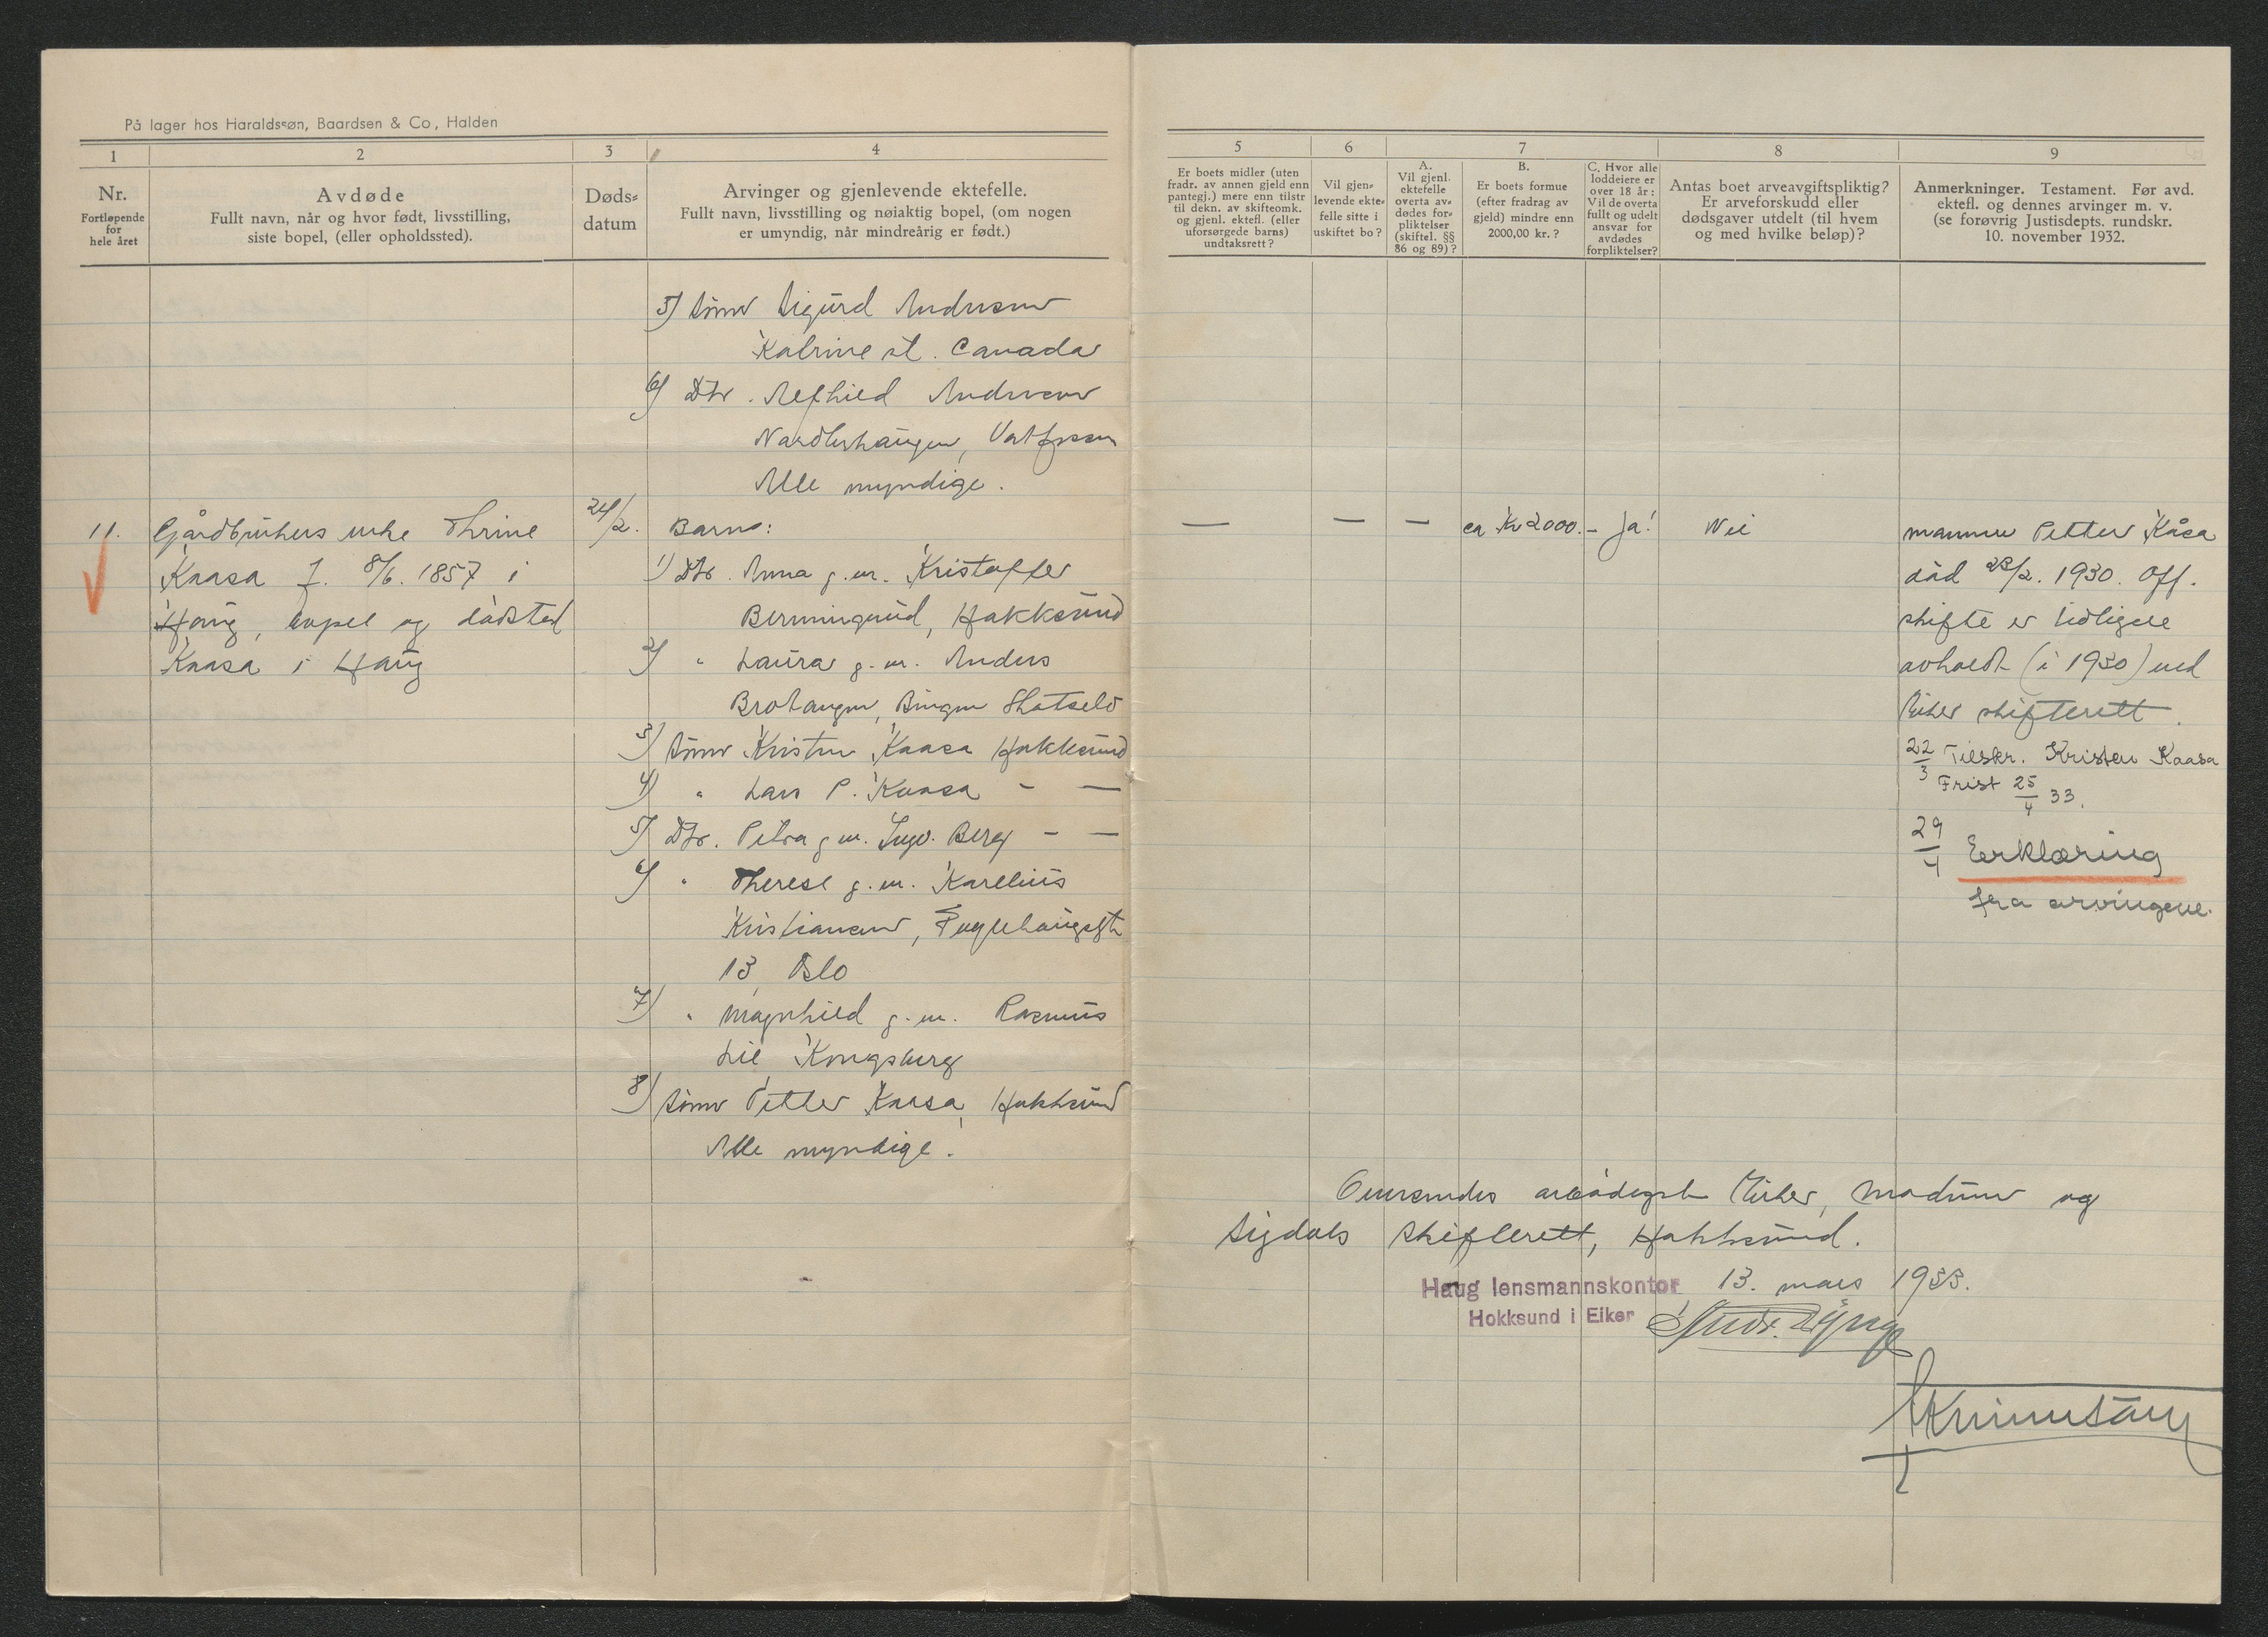 På lager hos Haraldssøn, Baardsen & Co, Halden
1
2
3
4
Nr.
Fortløpende
for
hele året
Avdøde
Fullt navn, når og hvor født, livsstilling,
siste bopel, (eller opholdssted).
Døds-
datum
Arvinger og gjenlevende ektefelle.
Fullt navn, livsstilling og nøiaktig bopel, (om nogen
er umyndig, når mindreårig er født.)
5) Sønn Sigurd Andersen
Katrine st. Canada
6) Dtr. Alfhild Andersen
Vestfossen
Alle myndige.
11. Gårdbrukers enke Thrine
Kaasa f. 8/6. 1857 i
Haug, bopel og dødsted
Kaasa i Haug
24/2.
Barn:
1) Dtr. Anna g.m. Kristoffer
Berminrud, Hokksund
2) " Laura g.m. Anders
Brohaugen, Bingen Skotselv
3) Sønn Kristen Kaasa Hokksund
4) " Lars P. Kaasa - —
5) Dtr. Petra g.m. Ingv. Berg - —
6) " Therese g.m. Karelius
Kristiansen, Fuglehauggt
13, Oslo
7) " Magnhild g.m. Rasmus
Lie Kongsberg
8) Sønn Petter Kaasa, Hokksund
Alle myndige.
5
6
7
8
9
Er boets midler (uten
fradr. av annen gjeld enn
pantegj.) mere enn tilstr
til dekn. av skifteomk.
og gjenl. ektefl. (eller
uforsørgede barns)
undtaksrett?
Vil gjen-
levende ekte-
felle sitte i
uskiftet bo?
A.
Vil gjenl.
ektefelle
overta av-
dødes for-
pliktelser
(skiftel. §§
86 og 89)?
B.
Er boets formue
(efter fradrag av
gjeld) mindre enn
2000,00 kr.?
C. Hvor alle
loddeiere er
over 18 år:
Vil de overta
fullt og udelt
ansvar for
avdødes
forpliktelser?
Antas boet arveavgiftspliktig?
Er arveforskudd eller
dødsgaver utdelt (til hvem
og med hvilke beløp)?
Anmerkninger. Testament. Før avd.
ektefl. og dennes arvinger m. v.
(se forøvrig Justisdepts. rundskr.
10. november 1932.
— — — ca Kr 2000.- Ja! Nei
mannen Petter Kåsa
død 23/2. 1930. Off.
skifte er tidligere
avholdt (i 1930) ved
Eiker skifterett.
22/3 Tilskr. Kristen Kaasa
Frist 25/4 33.
29/4 Erklæring
fra arvingene.
Oversendes ærbødigst Eiker, Modum og
Sigdals skifterett, Hokksund.
Haug lensmannskontor 13. mars 1933.
Hokksund i Eiker